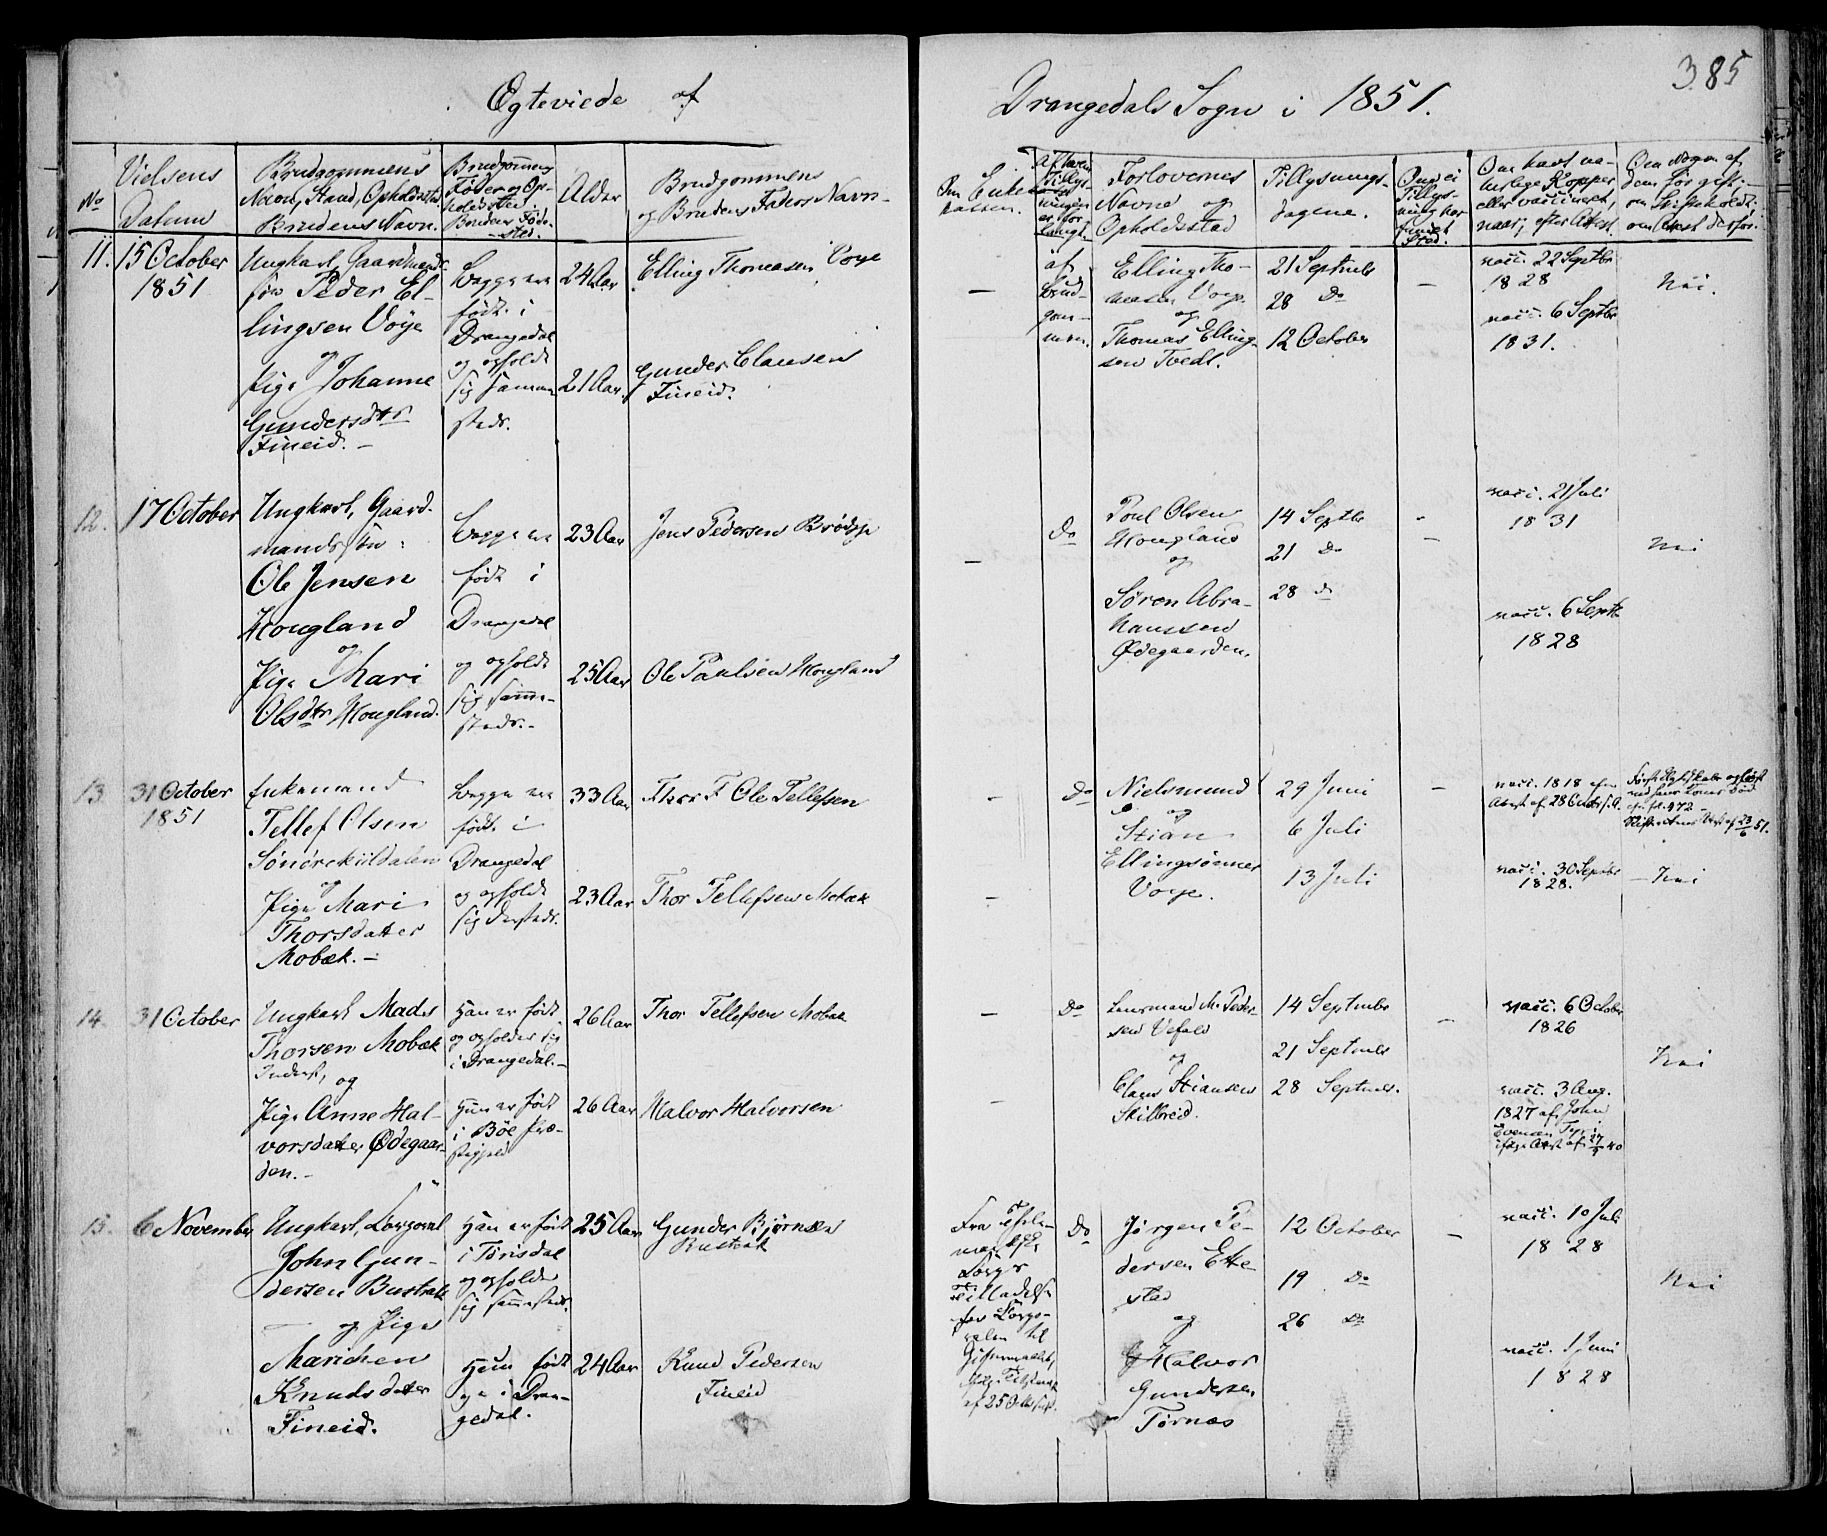 Egteviede af
Drangedals Sogn i 1851.
385
No
Vielsens
Datum
Brudgommens
Navn, Stand, Opholdssted
Brudens Navn.
Brudgommens
Føde og Op-
holdssted.
Brudens Føde-
sted.
Alder
Brudgommens
og Brudens Faders Navn
Om Enke
Forlovernes
Navne og
Opholdsstad
Tillysnings-
dagene.
Om ei
Tillys-
ning har
fundet
Sted.
Om havt na-
turlige Kopper
eller vaccineret,
naar, efter Attest.
Om Nogen af
dem før gift;
om Skifteholdt;
om Attest derfor.
11.
15 October
1851
Ungkarl, Gaardmands-
søn Peder El-
lingsen Voje
og
Pige Johanne
Gundersdtr
Fineid. –
Begge ere
født i
Drangedal
og opholdt
sig samme-
steds.
24 Aar
21 Aar
Elling Thomasen Voje
Gunder Clausen
Fineid.
–
af
Brud-
gom-
men.
Elling Tho-
masen Voje
og
Thomas Elling-
sen Tvedt.
21 Septmbr
28 Do
12 October
–
vacc. 22 Septbr
1828
vacc. 6 Septbr
1831.
Nei.
12.
17 October
Ungkarl, Gaard-
mandssøn:
Ole Jensen
Hougland
og
Pige Mari
Olsdtr Hougland.
Begge ere
født i
Drangedal
og opholdt
sig samme-
steds.-
23 Aar
25 Aar
Jens Pedersen
Ole Paulsen Hougland
–
Do
Poul Olsen
Hougland
og
Søren Abra-
hamsen
Ødegaarden.
14 Septbr
21 Do
28 do
–
vacc. 21 Juli
1831
vacc. 6 Septb
1828
Nei
13
31 October
1851
Enkemand
Tellef Olsen
og
Pige Mari
Thorsdatter
Mobæk. –
Begge ere
født i
Drangedal
og opholdt
sig dersteds.
33 Aar
23 Aar
Ole Tellefsen
Thor Tellefsen Mobæk
–
–
Do
Nielsmund
og
Stian
Ellingsønner
Voje.
29 Juni
6 Juli
13 Juli
–
vacc. 1818
vacc. 30 Septbr
1828.
– Nei
14.
31 October
Ungkarl Mads
Thorsen Mobæk
Inderst, og
Pige Anne Hal-
vorsdatter Ødegaar-
den. –
Han er født
og opholder sig
i Drangedal. –
Hun er født
i Bøe Præ-
stegjeld
26 Aar
26 Aar
Thor Tellefsen Mobæk
Halvor Halvorsen
–
–
Do
Lensmand M. Peder-
sen Vefald
og
Claus Stiansen
Skilbreid.
14 Septmbr
21 Septmbr
28 Septmbr.
–
vacc. 6 October
1826
vacc. 3 Aug.
1827 af John
Evensen
Nei
15.
6 November
Ungkarl,
John Gun-
dersen Bustrak
– og Pige
Marichen
Knudsdatter
Fineid.
Han er født
i Tørisdal
og opholdt
sig sammesteds.
Hun født
i Dran-
gedal.
25 Aar
24 Aar
Gunder Bjørnsen
Bustrak
Knud Pedersen
Fineid
Tilladelse
til
af 25 Octb
Do
Jørgen Pe-
dersen Ette-
stad
og
Halvor
Gundersen
Tørnæs
12 October
19 Do
26 Do
–
vacc. 10 Juli
1828
vacc. 1 Juni
1828
Nei